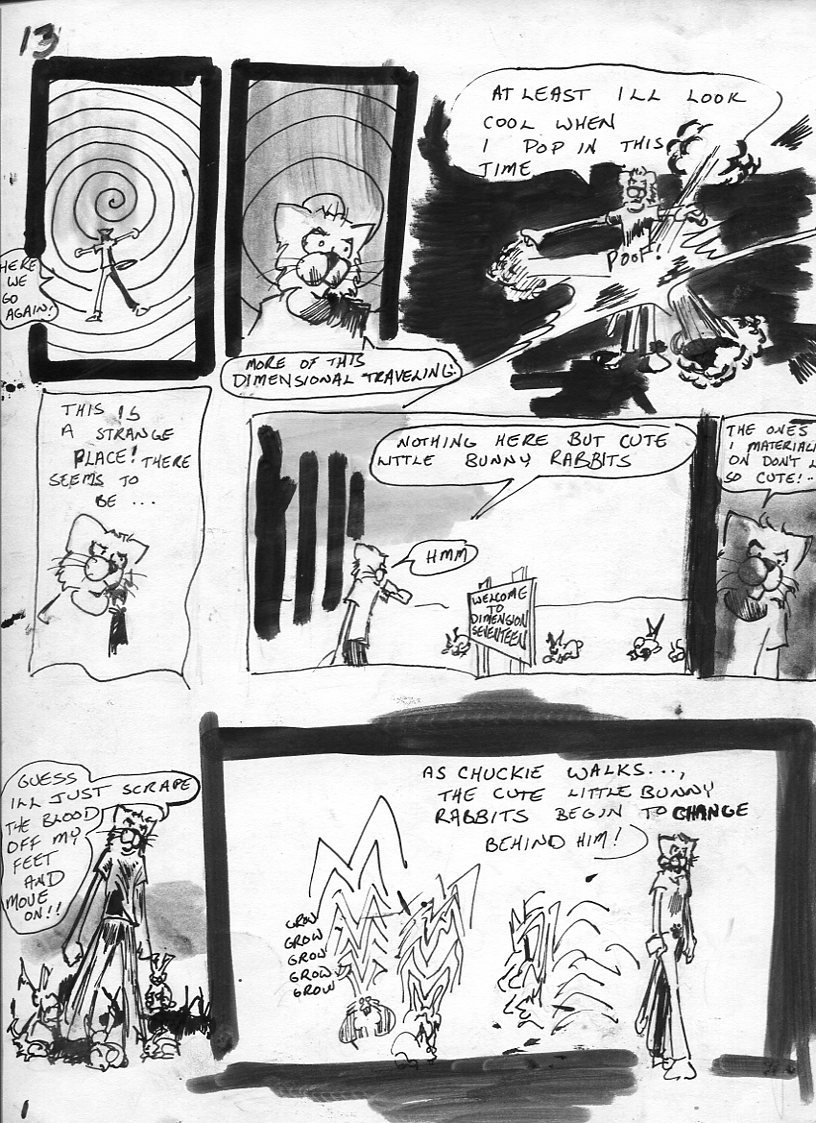 13
HERE
WE
GO
AGAIN!
MORE OF THIS
DIMENSIONAL TRAVELING.
AT LEAST ILL LOOK
COOL WHEN
I POP IN THIS
TIME
POOF!
THIS IS
A STRANGE
PLACE! THERE
SEEMS TO
BE ...
NOTHING HERE BUT CUTE
LITTLE BUNNY RABBITS
HMM
WELCOME
TO
DIMENSION
SEVENTEEN
THE ONES
I MATERIALI
ON DON'T L
SO CUTE!..
GUESS
ILL JUST SCRAPE
THE BLOOD
OFF MY
FEET
AND
MOVE
ON!!
AS CHUCKIE WALKS...,
THE CUTE LITTLE BUNNY
RABBITS BEGIN TO CHANGE
BEHIND HIM!
GROW
GROW
GROW
GROW
GROW
1